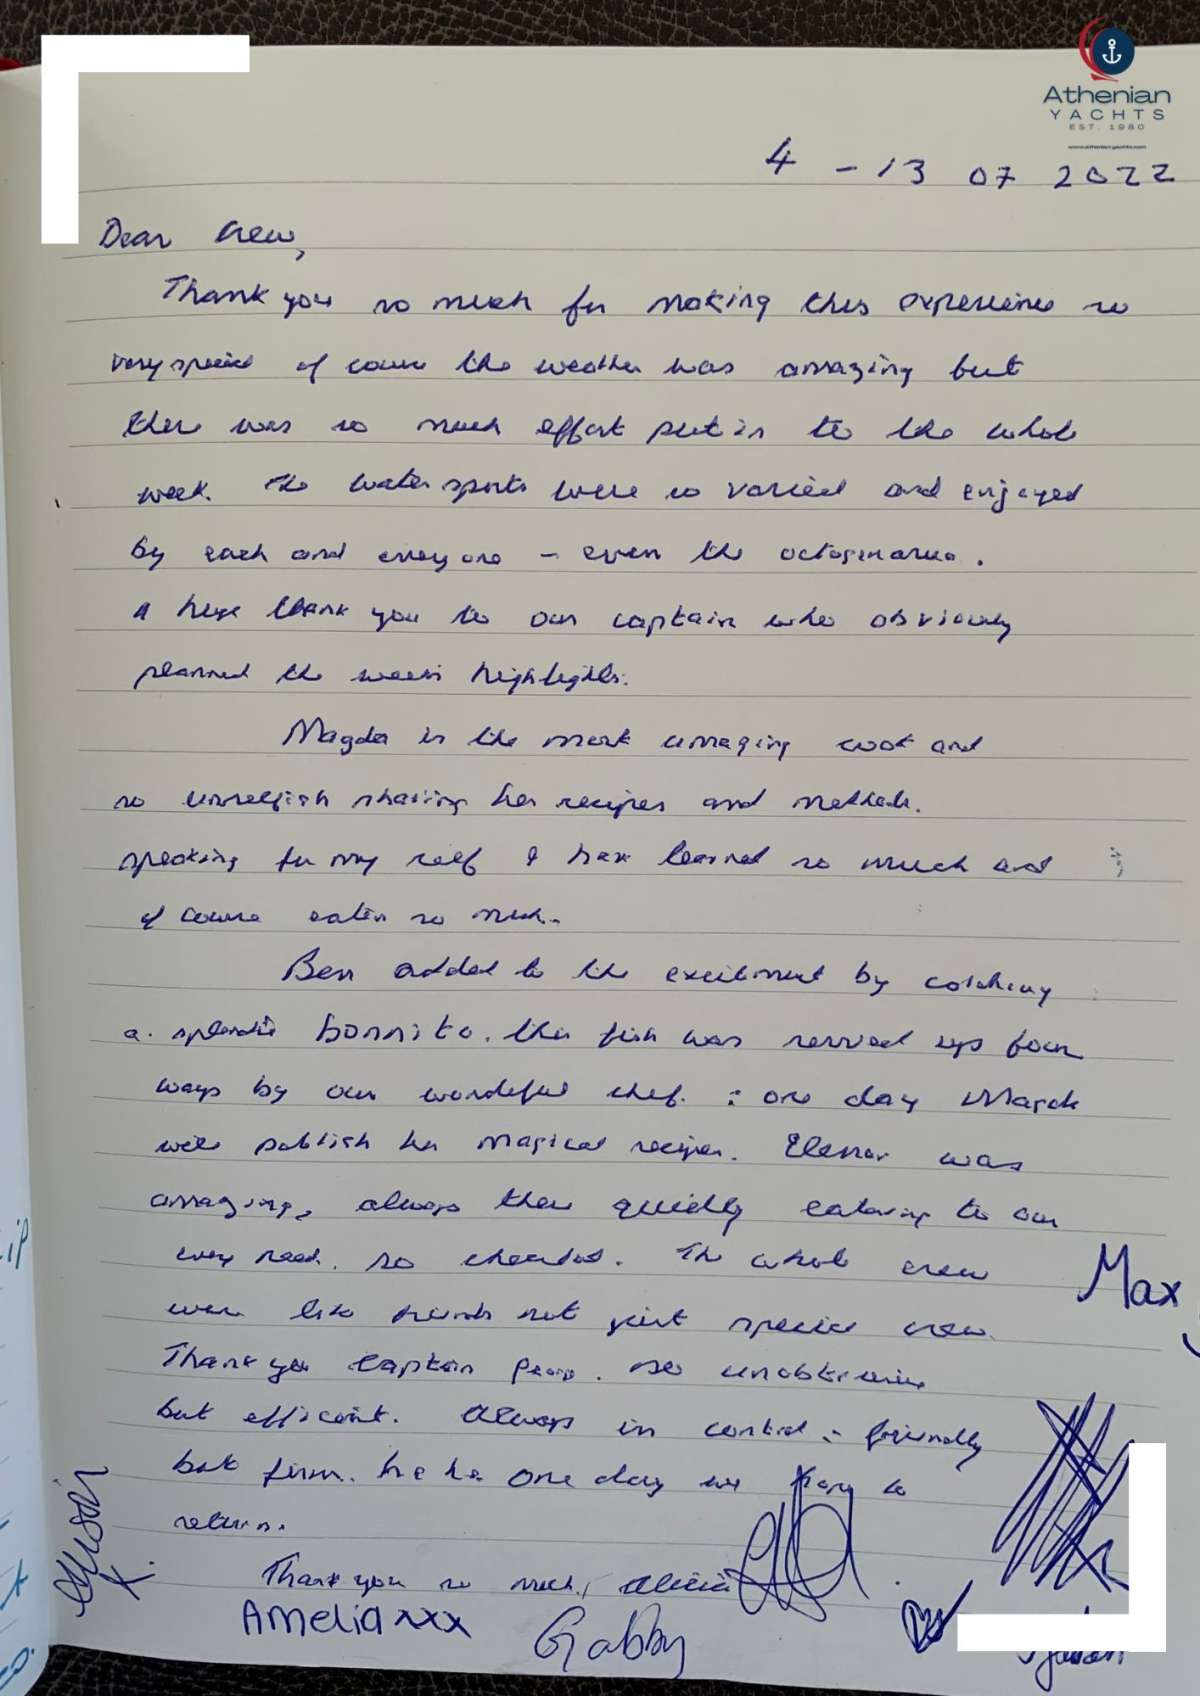 Athenian
YACHTS
EST. 1980
www.athenian-yachts.com
4 - 13 07 2022
Dear Crew,
Thank you so much for making this experience so
very special of course the weather was amazing but
there was so much effort put in to the whole
week. The water sports were so varied and enjoyed
by each and everyone - even the
A huge thank you to our captain who obviously
planned the weeks highlights.
Magda is the most amazing cook and
so unselfish sharing her recipes and methods.
speaking for my self I have learned so much and
of course eaten so much.
Ben added to the excitment by catching
a splendid bonnito. this fish was served up four
ways by our wonderful chef. : one day Magda
will publish her magical recipes. Elenor was
amazing, always there quietly catering to our
every need. so cheerful. The whole crew
were like friends not just special crew.
Thank you Captain so
but efficient. Always in control - friendly
but firm. one day we hope to
return.
Thank you so much, Alicia
Amelia xxx
Gabby
Max
Allison x